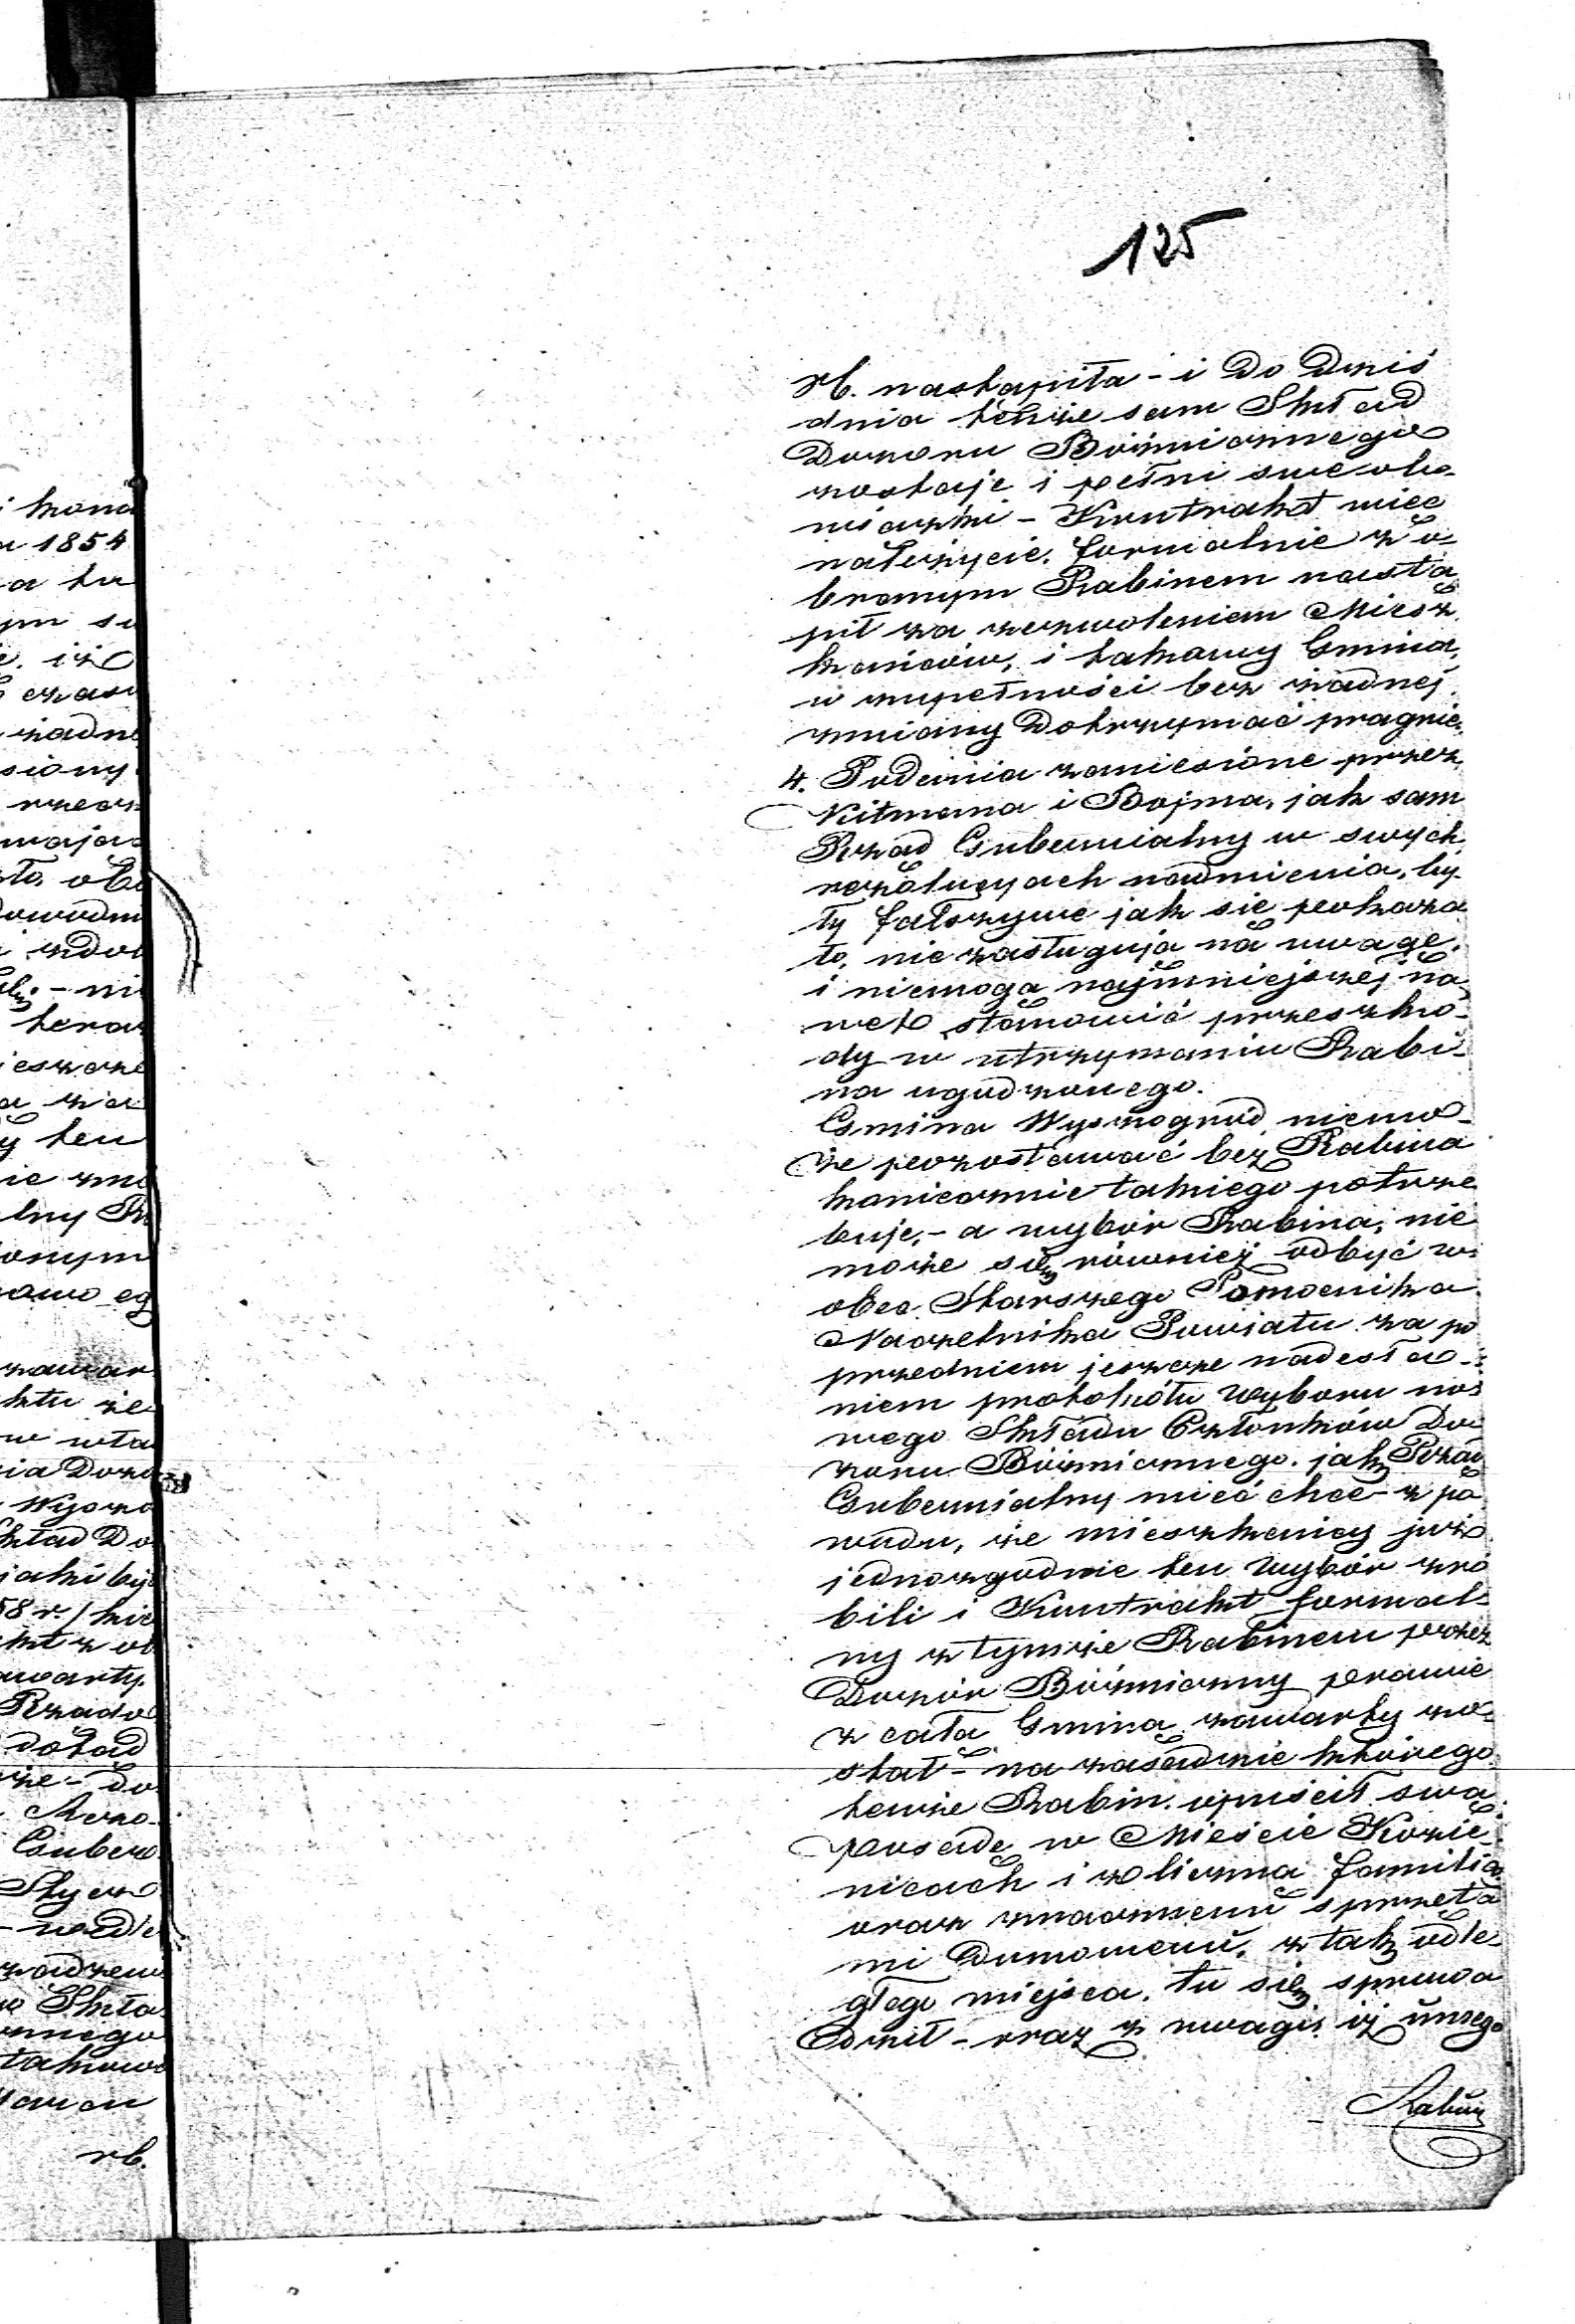 125
rb. nastąpiła - i do dziś
dnia tenże sam Skład
Dozoru Bóżnicznego
zostaje i pełni swe obo-
wiązki - Kontrakt więc
należycie, formalnie z o-
branym Rabinem nastą
pił za zezwoleniem Miesz
kańców, i takowy Gmina,
w zupełności bez żadnej
zmiany dotrzymać pragnie.
4. Podania zaniesione przez
Kitmana i Bojma, jak sam
Rząd Gubernialny w swych
rezolucyach nadmienia, by
ły fałszywe jak się pokaza
ło, nie zasługują na uwagę,
i niemogą najmniejszej na
wet stanowić przeszko-
dy w utrzymaniu Rabi-
na ugodzonego.
Gmina Wyszogród niemo-
że pozostawać bez Rabina
koniecznie takiego potrze
buje, - a wybór Rabina, nie
może się również odbyć w
obec Starszego Pomocnika
Naczelnika Powiatu za po
przedniem jeszcze nadesła-
niem protokółu wyboru no-
wego Składu Członków Do-
zoru Bóżnicznego, jak Rząd
Gubernialny mieć chce - z po
wodu, że mieszkańcy już
jednozgodnie ten wybór zro
bili i Kontrakt formal-
ny z tymże Rabinem przez
Dozór Bóżniczny prawie
z całą Gminą zawarty zo-
stał - na zasadzie którego
tenże Rabin opuścił swą
posadę w Mieście Kozie-
nicach i z liczną familią
oraz znacznemi sprzęta
mi domowemi, z tak odle-
głego miejsca, tu się sprowa
dził - oraz z uwagi, iż innego
Rabina
i kona
1854
a tu
ym su
iż
czasu
żadne
siony
rzecz
mają
to, obo
dowodni
- ni
teraz
ieszcze
ten
ie zmo
lny
onym
zawar
ktu że
w uła
ia Dozo
Wyszo
kład Do
jaki by
58 r./
kt z ob
awarty.
Rządo
dotąd
że - do
Guber
- wedle
adzen
Skła
znego
takowe
rb.